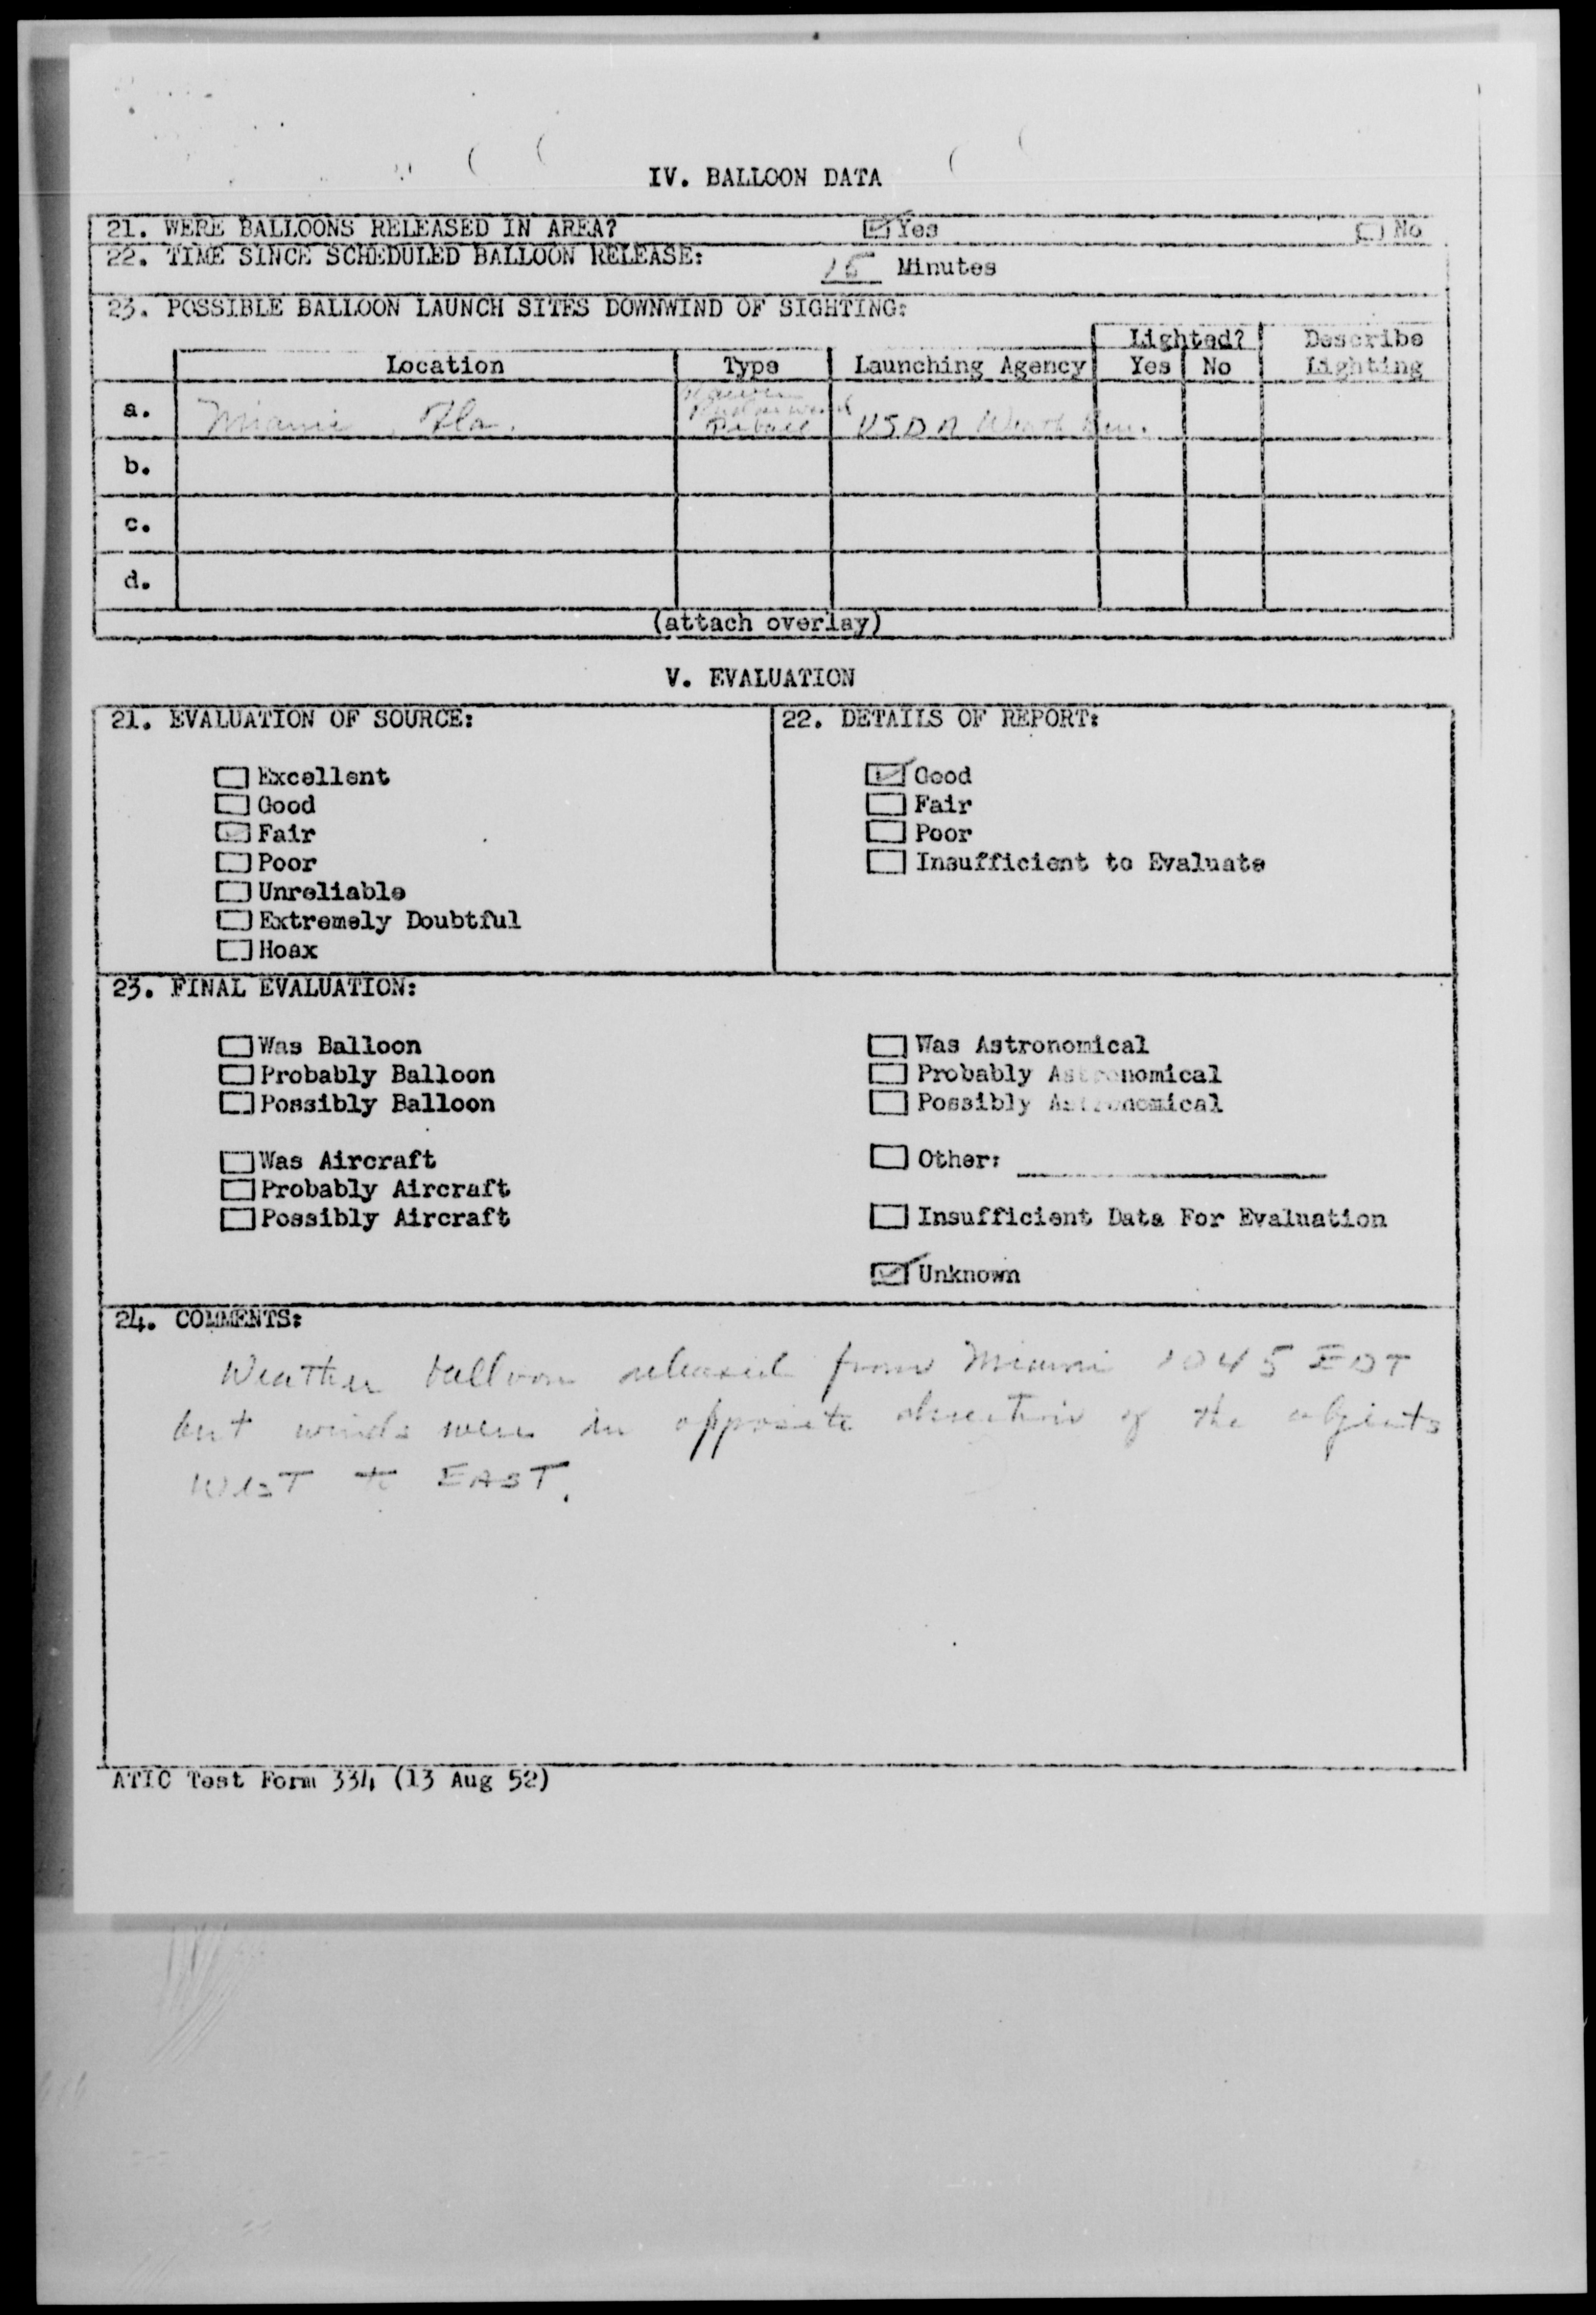 IV. BALLOON DATA
21. WERE BALLOONS RELEASED IN AREA? Yes No
22. TIME SINCE SCHEDULED BALLOON RELEASE: 15 Minutes
23. POSSIBLE BALLOON LAUNCH SITES DOWNWIND OF SIGHTING:
Lighted? Describe
Location Type Launching Agency Yes No Lighting
a. Miami, Fla. Pibal USDA Weath Bur.
b.
c.
d.
(attach overlay)
V. EVALUATION
21. EVALUATION OF SOURCE: 22. DETAILS OF REPORT:
Excellent Good
Good Fair
Fair Poor
Poor Insufficient to Evaluate
Unreliable
Extremely Doubtful
Hoax
23. FINAL EVALUATION:
Was Balloon Was Astronomical
Probably Balloon Probably Astronomical
Possibly Balloon Possibly Astronomical
Was Aircraft Other:
Probably Aircraft
Possibly Aircraft Insufficient Data For Evaluation
Unknown
24. COMMENTS:
Weather balloon released from Miami 1045 EDT
but winds were in opposite direction of the objects
WEST to EAST.
ATIC Test Form 334 (13 Aug 52)